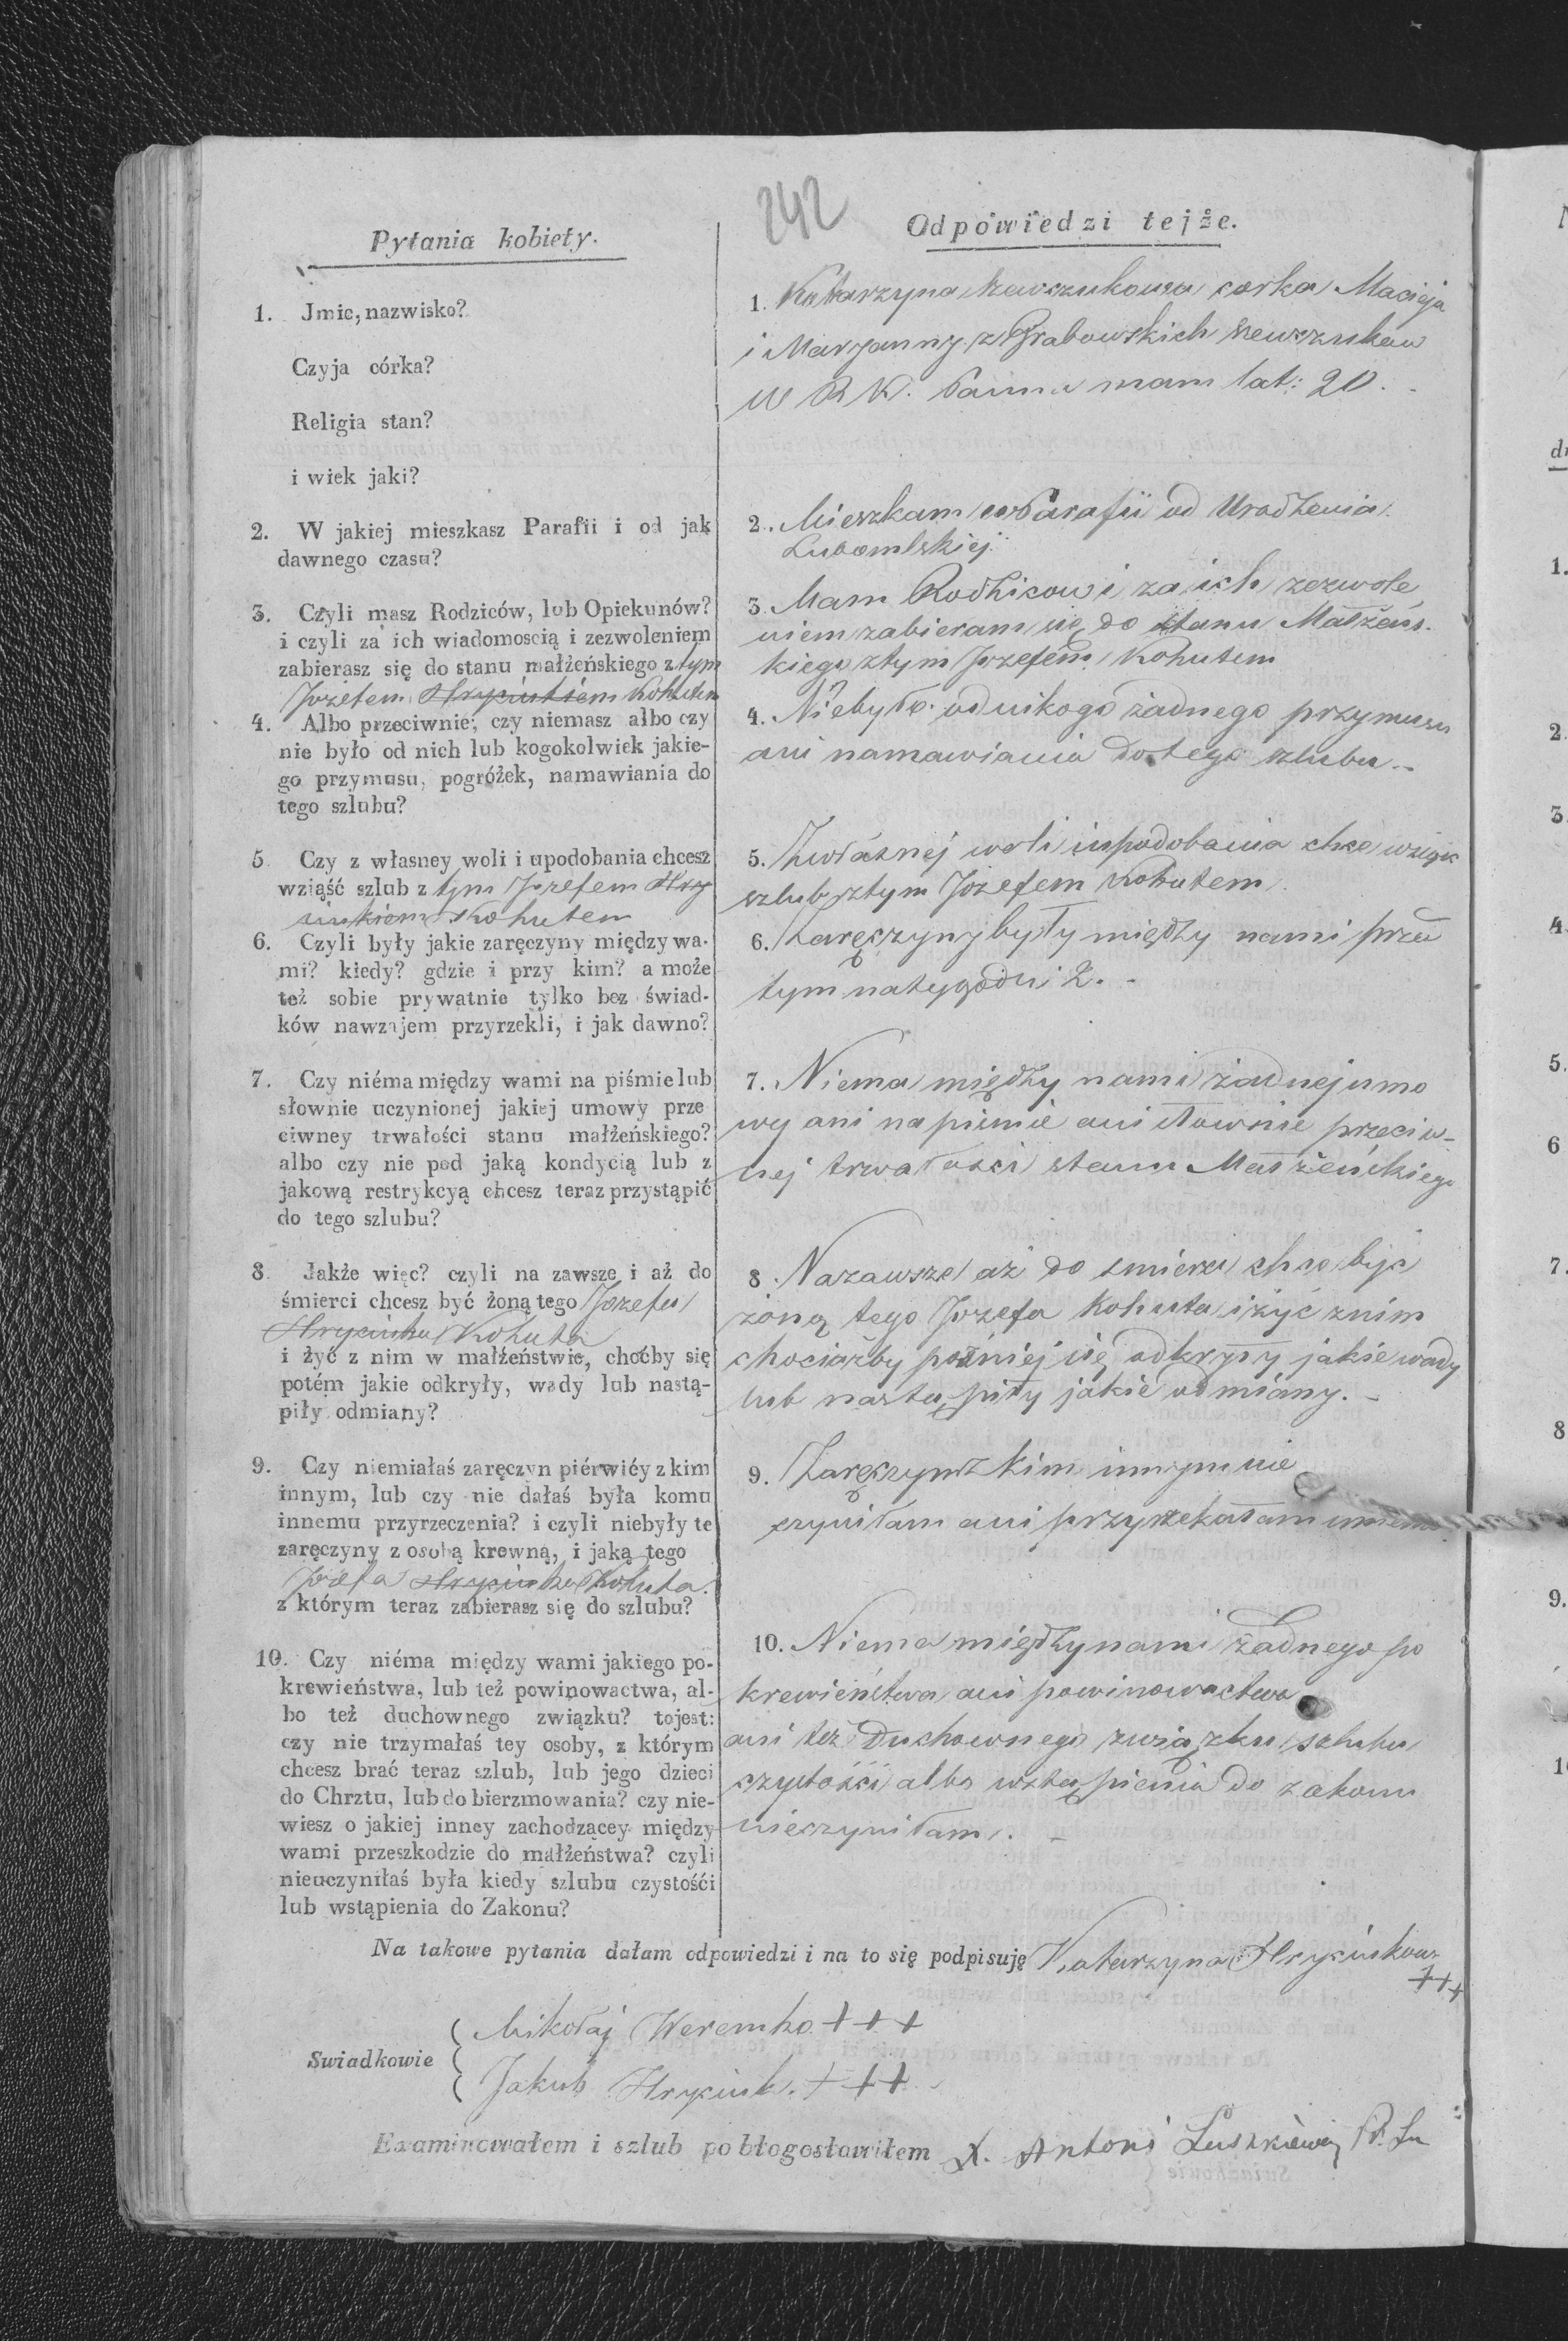 242
Pytania kobiety.
1. Jmie, nazwisko?
Czyja córka?
Religia stan?
i wiek jaki?
2. W jakiej mieszkasz Parafii i od jak
dawnego czasu?
3. Czyli masz Rodziców, lub Opiekunów?
i czyli za ich wiadomoscią i zezwoleniem
zabierasz się do stanu małżeńskiego z tym
Jozefem Hryciukiem Kohutem
4. Albo przeciwnie; czy niemasz albo czy
nie było od nich lub kogokolwiek jakie-
go przymusu, pogróżek, namawiania do
tego szlubu?
5 Czy z własney woli i upodobania chcesz
wziąść szlub z tym Jozefem Hry
ciukiem Kohutem
6. Czyli były jakie zaręczyny między wa-
mi? kiedy? gdzie i przy kim? a może
też sobie prywatnie tylko bez świad-
ków nawzajem przyrzekli, i jak dawno?
7. Czy niéma między wami na piśmie lub
słownie uczynionej jakiej umowy prze
ciwney trwałości stanu małżeńskiego?
albo czy nie pod jaką kondycią lub z
jakową restrykcyą chcesz teraz przystąpić
do tego szlubu?
8. Jakże więc? czyli na zawsze i aż do
śmierci chcesz być żoną tego Jozefa
Hryciuka Kohuta
i żyć z nim w małżeństwie, choćby się
potém jakie odkryły, wady lub nastą-
piły odmiany?
9. Czy niemiałaś zaręczyn piérwiéy z kim
innym, lub czy nie dałaś była komu
innemu przyrzeczenia? i czyli niebyły te
zaręczyny z osobą krewną, i jaką tego
Jozefa Hryciuka Kohuta.
z którym teraz zabierasz się do szlubu?
10. Czy niéma między wami jakiego po-
krewieństwa, lub też powinowactwa, al-
bo też duchownego związku? tojest:
czy nie trzymałaś tey osoby, z którym
chcesz brać teraz szlub, lub jego dzieci
do Chrztu, lub do bierzmowania? czy nie-
wiesz o jakiej inney zachodzącey między
wami przeszkodzie do małżeństwa? czyli
nieuczyniłaś była kiedy szlubu czystośći
lub wstąpienia do Zakonu?
Odpowiedzi tejże.
1. Katarzyna corka Macieja
i Maryanny z Grabowskich
W R K. Panna mam lat: 20. -
2. Mieszkam w Parafii od Urodzenia
Lubomlskiej
3. Mam Rodzicow i za ich zezwole
niem zabieram się do stanu Małżeńs-
kiego z tym Jozefem Kohutem
4. Niebyło od nikogo żadnego przymusu
ani namawiania do tego szlubu. -
5. Z własnej woli i upodobania chcę wziąść
szlub z tym Jozefem Kohutem
6. Zaręczyny były między nami przed
tym na tygodni 2. -
7. Niema między nami żadnej umo
wy ani na pismie ani słownie przeciw-
nej trwałości stanu Małżeńskiego
8. Nazawsze aż do smierci chce być
żoną tego Jozefa Kohuta i żyć z nim
chociażby poźniej się odkryły jakie wady
lub nastąpiły jakie odmiany. -
9. Zaręczyn z kim innym nie
czyniłam ani przyrzekałam
10. Niema między nami żadnego po
krewieństwa ani powinowactwa
ani też Duchownego związku szlubu
czystości albo wstąpienia do zakonu
nieczyniłam. -
Na takowe pytania dałam odpowiedzi i na to się podpisuję Katarzyna Hryciukowa
+++
Swiadkowie
Mikołaj Weremko +++
Jakub Hryciuk. +++
Examinowałem i szlub pobłogosławiłem X. Antoni